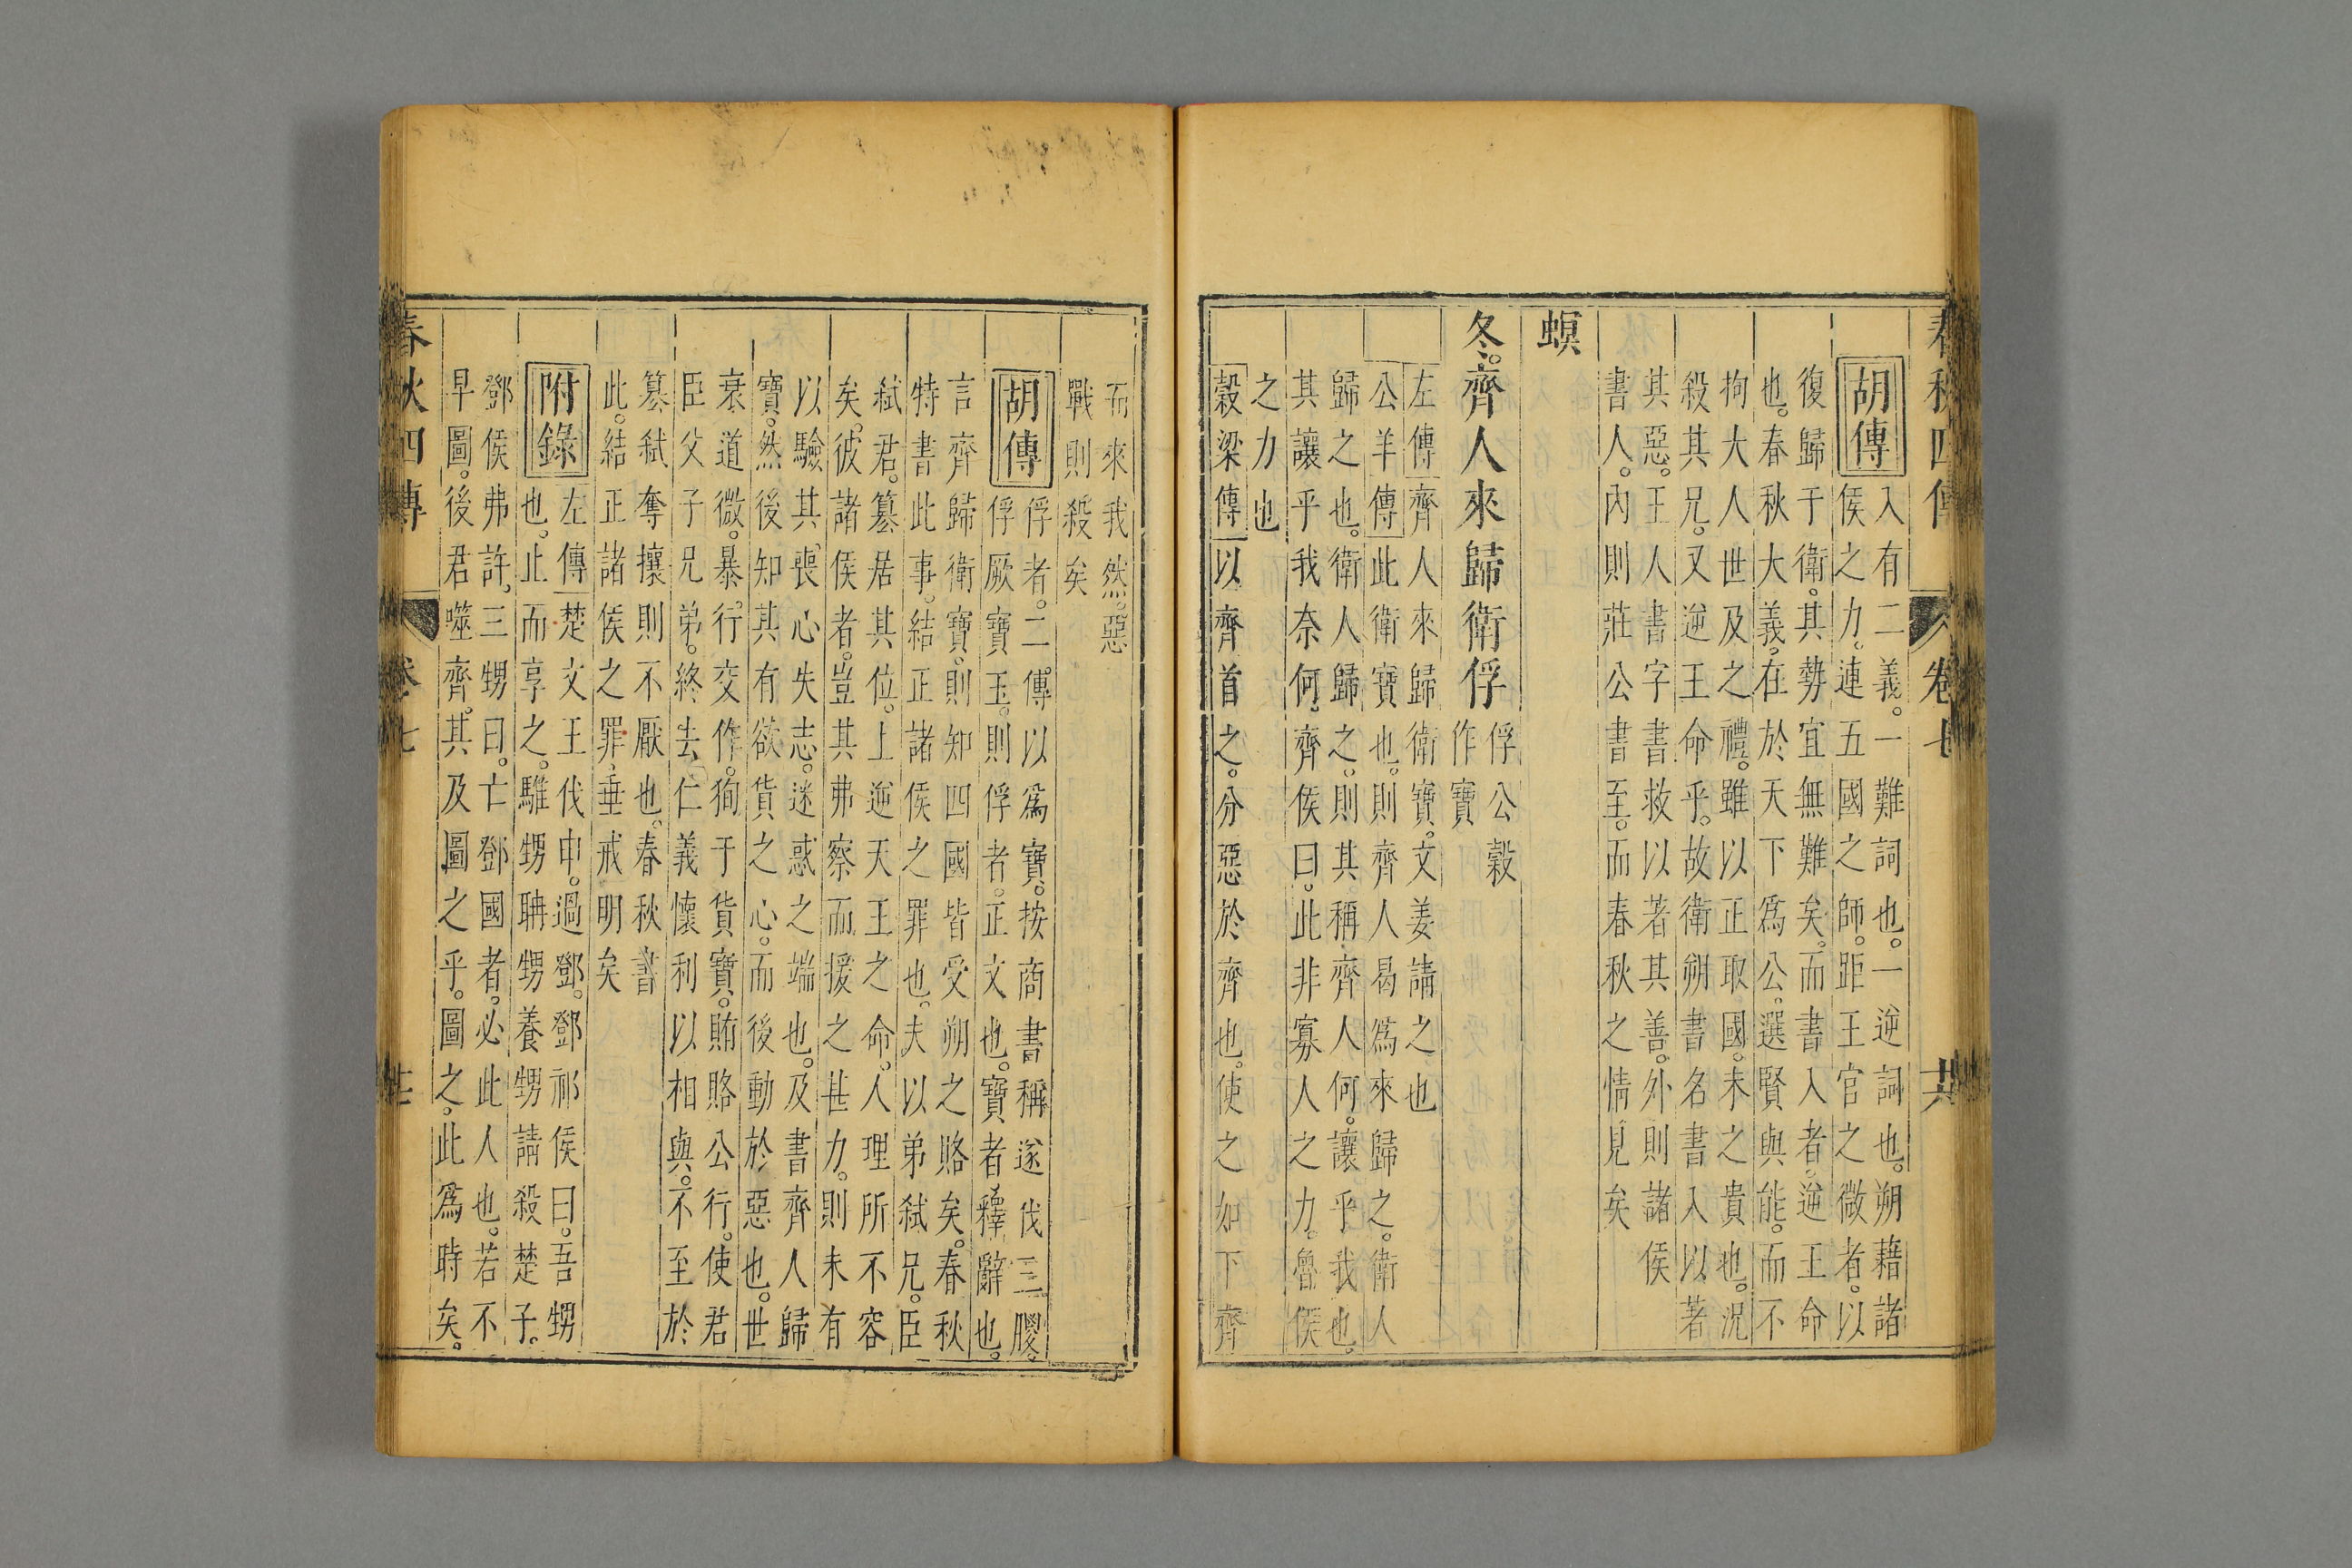 春秋四傳 卷七 十六
胡傳 入有二義。一難詞也。一逆詞也。朔藉諸
侯之力。連五國之師。距王官之微者。以
復歸于衛。其勢宜無難矣。而書入者。逆王命
也。春秋大義。在於天下爲公。選賢與能。而不
拘大人世及之禮。雖以正取國。未之貴也。況
殺其兄。又逆王命乎。故衛朔書名書入以著
其惡。王人書字書救以著其善。外則諸侯
書人。內則莊公書至。而春秋之情見矣
螟
冬。齊人來歸衛俘 俘公穀
作寶
左傳 齊人來歸衛寶。文姜請之也
公羊傳 此衛寶也。則齊人曷爲來歸之。衛人
歸之也。衛人歸之。則其稱齊人何。讓乎我也。
其讓乎我奈何。齊侯曰。此非寡人之力。魯侯
之力也
穀梁傳 以齊首之。分惡於齊也。使之如下齊
而來我然。惡
戰則殺矣
胡傳 俘者。二傳以爲寶。按商書稱遂伐三朡。
俘厥寶玉。則俘者。正文也。寶者釋辭也。
言齊歸衛寶。則知四國皆受朔之賂矣。春秋
特書此事。結正諸侯之罪也。夫以弟弑兄。臣
弑君。篡居其位。上逆天王之命。人理所不容
矣。彼諸侯者。豈其弗察而援之甚力。則未有
以驗其喪心失志。迷惑之端也。及書齊人歸
寶。然後知其有欲貨之心。而後動於惡也。世
衰道微。暴行交作。狥于貨寶。賄賂公行。使君
臣父子兄弟。終去仁義懷利以相與。不至於
篡弑奪攘則不厭也。春秋書
此。結正諸侯之罪。垂戒明矣
附錄 左傳 楚文王伐申。過鄧。鄧祁侯曰。吾甥
也。止而享之。騅甥聃甥養甥請殺楚子。
鄧侯弗許。三甥曰。亡鄧國者。必此人也。若不
早圖。後君噬齊。其及圖之乎。圖之。此爲時矣。
春秋四傳 卷七